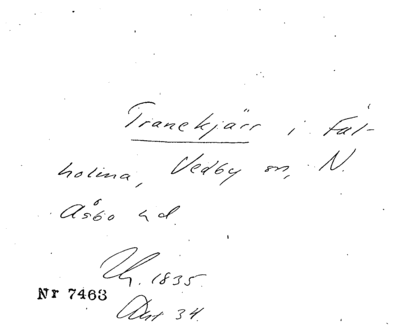 Tranekjärr i Fäl-
holma, Vedby sn, N.
Åsbo hd.
1835.
Nr 7463
Akt 34.